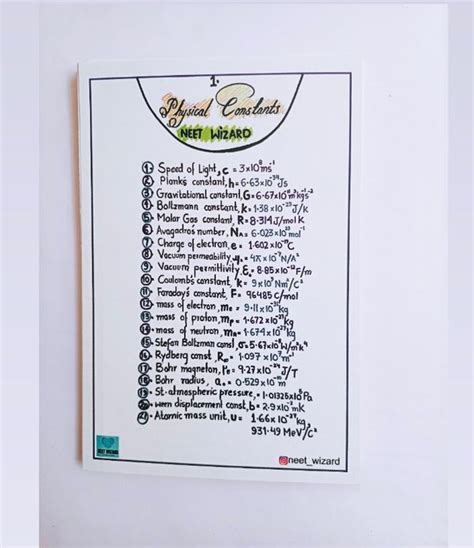 1.
Physical Constants
NEET WIZARD
1. Speed of Light, c = 3×10⁸ms⁻¹
2. Planks constant, h = 6.63×10⁻³⁴Js
3. Gravitational constant, G = 6.67×10⁻¹¹m³kg⁻¹s⁻²
4. Boltzmann constant, k = 1.38×10⁻²³J/K
5. Molar Gas constant, R = 8.314J/mol K
6. Avagadro's number, Nₐ = 6.023×10²³mol⁻¹
7. Charge of electron, e = 1.602×10⁻¹⁹C
8. Vacuum permeability, μ₀ = 4π×10⁻⁷N/A²
9. Vacuum permittivity, ε₀ = 8.85×10⁻¹²F/m
10. Coulomb's constant, k = 9×10⁹Nm²/C²
11. Faraday's constant, F = 96485 C/mol
12. mass of electron, mₑ = 9.11×10⁻³¹kg
13. mass of proton, mₚ = 1.672×10⁻²⁷kg
14. mass of neutron, mₙ = 1.674×10⁻²⁷kg
15. Stefan Boltzman const, σ = 5.67×10⁻⁸W/m²K⁴
16. Rydberg const, R∞ = 1.097×10⁷m⁻¹
17. Bohr magneton, μ₀ = 9.27×10⁻²⁴J/T
18. Bohr radius, a₀ = 0.529×10⁻¹⁰m
19. St. atmospheric pressure, = 1.01325×10⁵Pa
20. ween displacement const, b = 2.9×10⁻³mK
21. Atomic mass unit, u = 1.66×10⁻²⁷kg,
931.49 MeV/c²
NEET WIZARD
neet_wizard